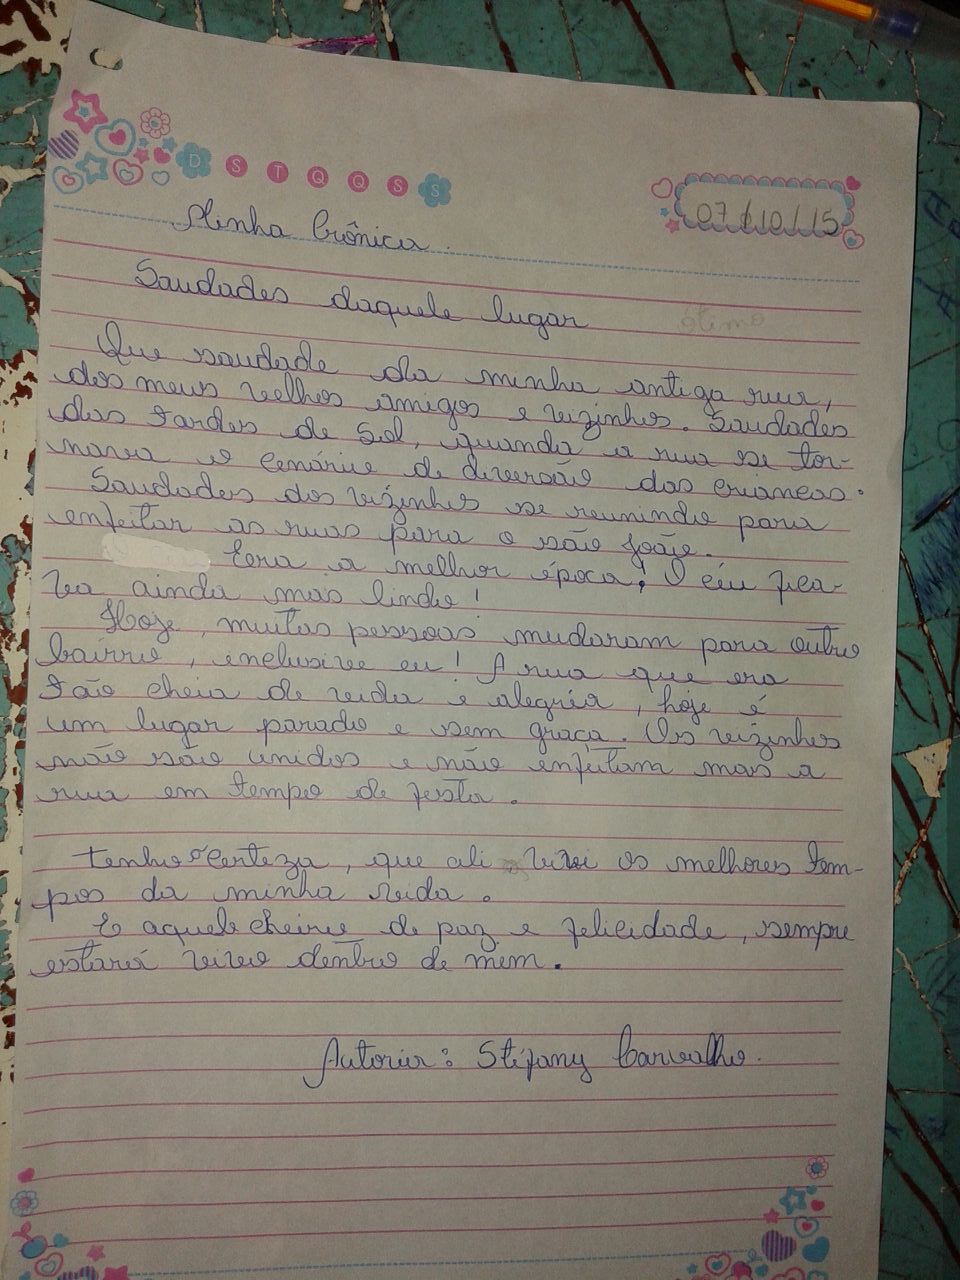 D S T Q Q S S
07/10/15
Minha Crônica.
Saudades daquele lugar
ótimo
Que saudade da minha antiga rua,
dos meus velhos amigos e vizinhos. Saudades
das tardes de Sol, quando a rua se tor-
nava o Cenário de diversão das crianças.
Saudades dos vizinhos se reunindo para
enfeitar as ruas para o são João.
Era a melhor época, O céu fica-
va ainda mas lindo!
Hoje, muitas pessoas mudaram para outro
bairro, inclusive eu! A rua que era
tão cheia de vida e alegria, hoje é
um lugar parado e sem graça. Os vizinhos
não são unidos e não enfeitam mas a
rua em tempo de festa.
Tenho certeza, que ali vivi os melhores tem-
pos da minha vida.
E aquele cheiro de paz e felicidade, sempre
estará vivo dentro de mim.
Autoria: Stéfany Carvalho.